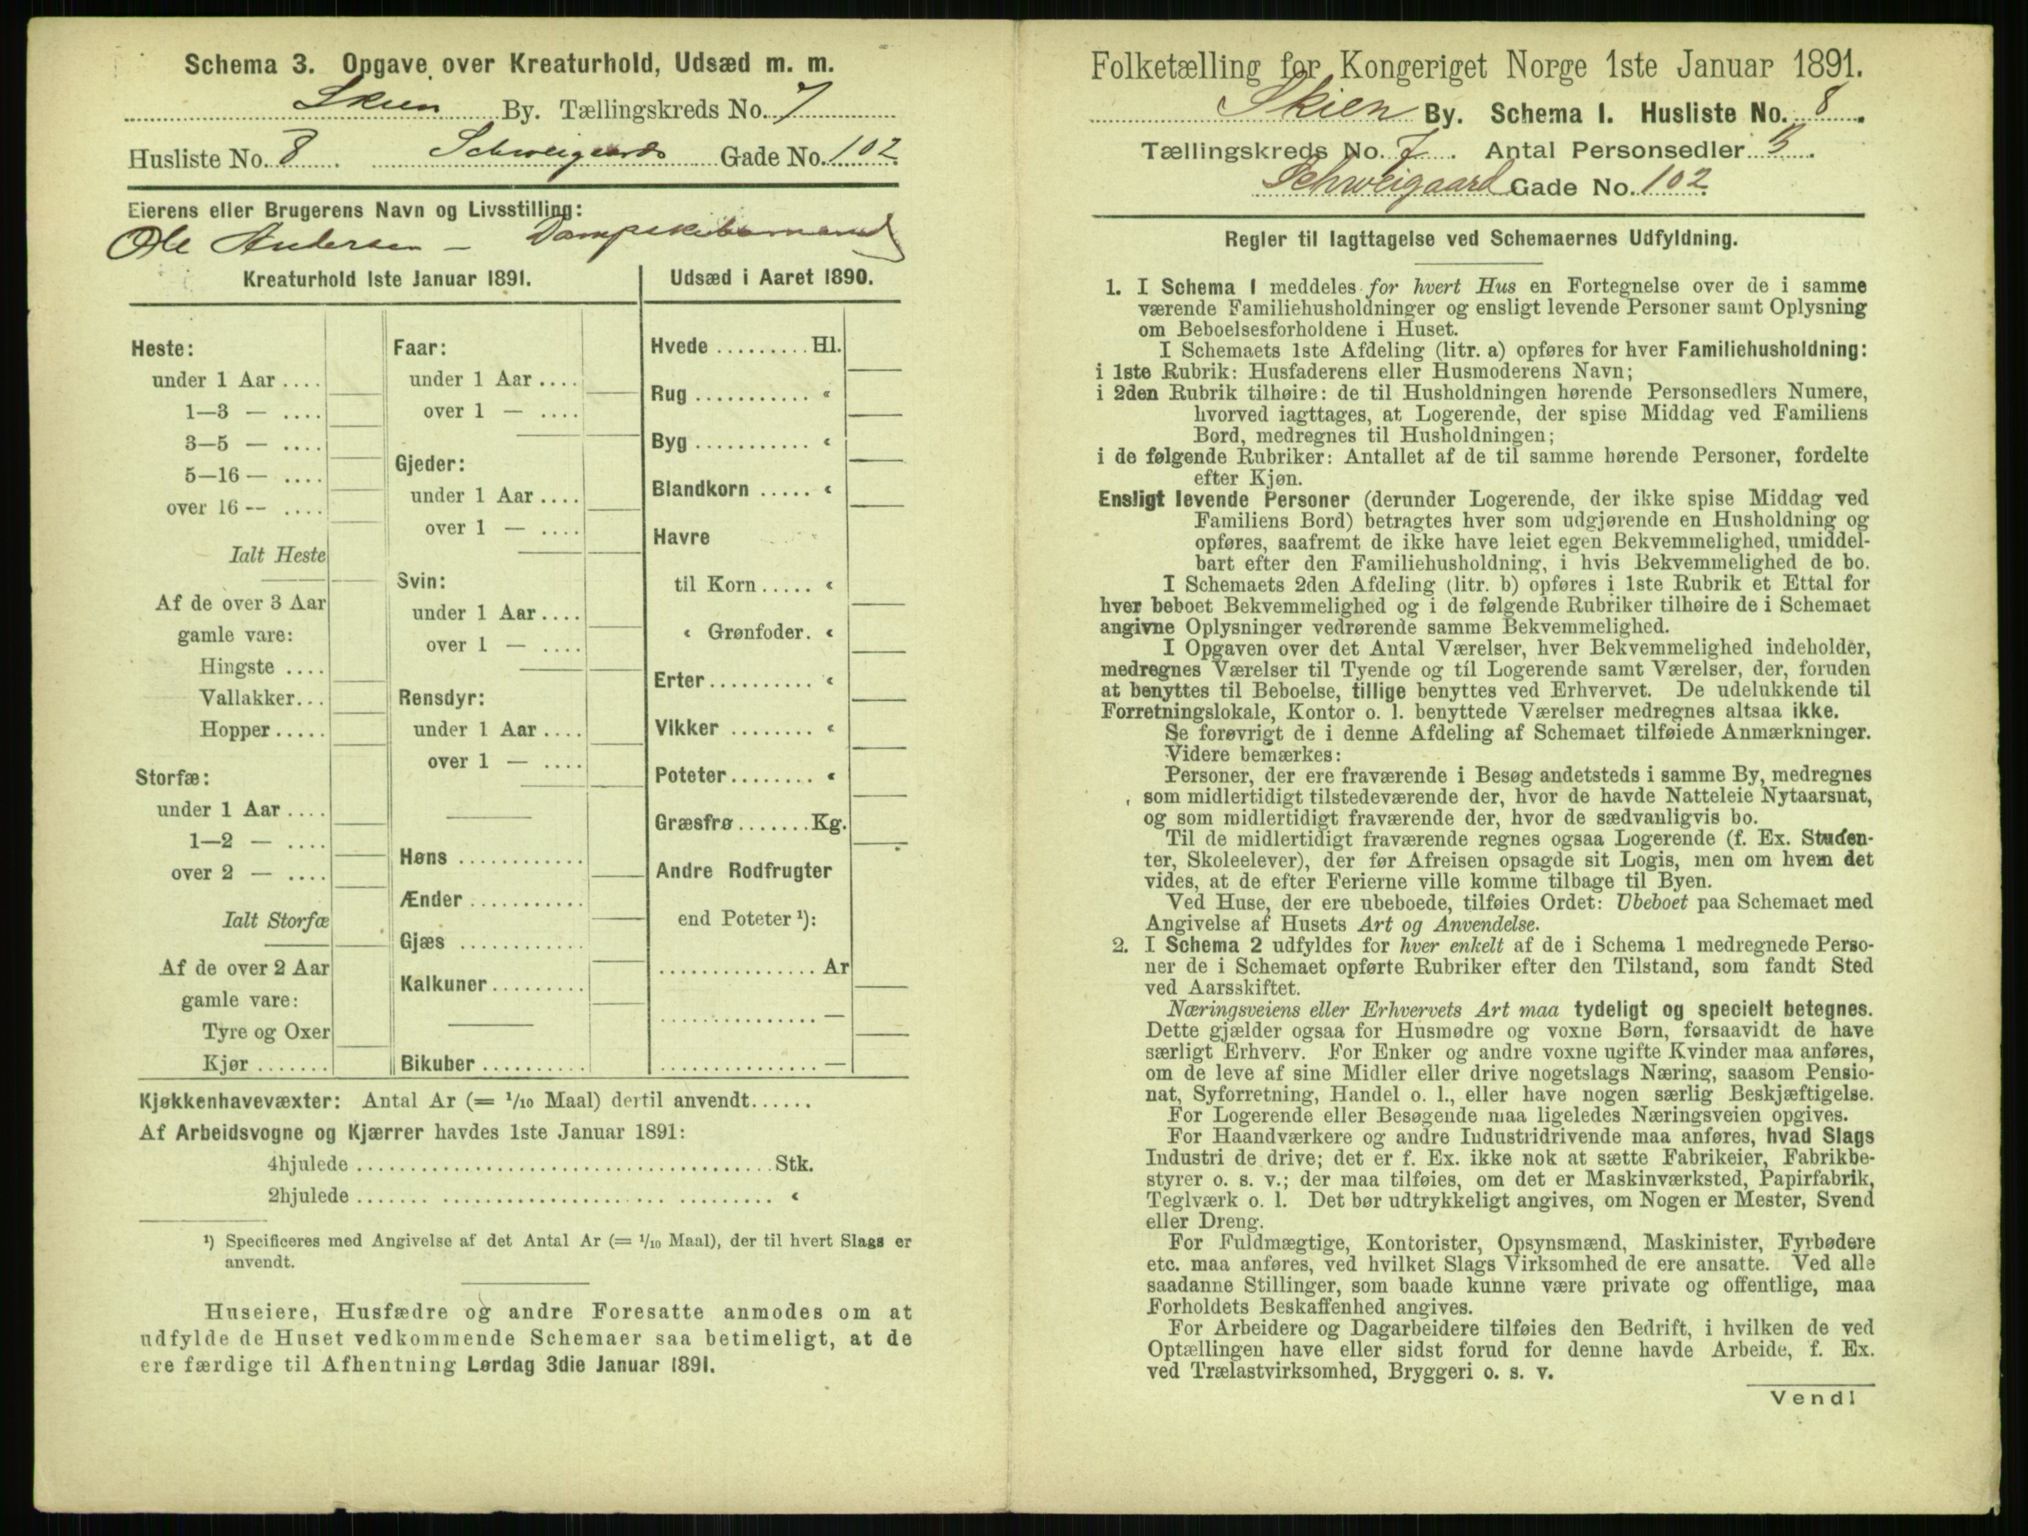 Schema 3. Opgave over Kreaturhold, Udsæd m. m.
Skien By. Tællingskreds No. 7
Husliste No. 8. Schweigaards Gade No. 102
Eierens eller Brugerens Navn og Livsstilling:
Ole Andersen – Dampskibsmand
Kreaturhold 1ste Januar 1891.
Heste:
under 1 Aar ....
1—3 — ....
3—5 — ....
5—16 — ....
over 16 — ....
Ialt Heste
Af de over 3 Aar
gamle vare:
Hingste ....
Vallakker...
Hopper .....
Storfæ:
under 1 Aar ....
1—2 — ....
over 2 — ....
Ialt Storfæ
Af de over 2 Aar
gamle vare:
Tyre og Oxer
Kjør .......
Faar:
under 1 Aar ....
over 1 — ....
Gjeder:
under 1 Aar ....
over 1 — ....
Svin:
under 1 Aar ....
over 1 — ....
Rensdyr:
under 1 Aar ....
over 1 — ....
Høns ............
Ænder ...........
Gjæs ............
Kalkuner.........
Bikuber ..........
Udsæd i Aaret 1890.
Hvede ......... Hl.
Rug ........... «
Byg ........... «
Blandkorn ..... «
Havre
til Korn..... «
« Grønfoder. «
Erter.......... «
Vikker ........ «
Poteter........ «
Græsfrø....... Kg.
Andre Rodfrugter
end Poteter ¹):
............... Ar
............... —
............... —
Kjøkkenhavevæxter: Antal Ar (= ¹/₁₀ Maal) dertil anvendt......
Af Arbeidsvogne og Kjærrer havdes 1ste Januar 1891:
4hjulede ........................................ Stk.
2hjulede ........................................ «
¹) Specificeres med Angivelse af det Antal Ar (= ¹/₁₀ Maal), der til hvert Slags er
anvendt.
Huseiere, Husfædre og andre Foresatte anmodes om at
udfylde de Huset vedkommende Schemaer saa betimeligt, at de
ere færdige til Afhentning Lørdag 3die Januar 1891.
Folketælling for Kongeriget Norge 1ste Januar 1891.
Skien By. Schema 1. Husliste No. 8.
Tællingskreds No. 7. Antal Personsedler 3.
Schweigaard Gade No. 102
Regler til Iagttagelse ved Schemaernes Udfyldning.
1. I Schema 1 meddeles for hvert Hus en Fortegnelse over de i samme
værende Familiehusholdninger og ensligt levende Personer samt Oplysning
om Beboelsesforholdene i Huset.
I Schemaets 1ste Afdeling (litr. a) opføres for hver Familiehusholdning:
i 1ste Rubrik: Husfaderens eller Husmoderens Navn;
i 2den Rubrik tilhøire: de til Husholdningen hørende Personsedlers Numere,
hvorved iagttages, at Logerende, der spise Middag ved Familiens
Bord, medregnes til Husholdningen;
i de følgende Rubriker: Antallet af de til samme hørende Personer, fordelte
efter Kjøn.
Ensligt levende Personer (derunder Logerende, der ikke spise Middag ved
Familiens Bord) betragtes hver som udgjørende en Husholdning og
opføres, saafremt de ikke have leiet egen Bekvemmelighed, umiddel-
bart efter den Familiehusholdning, i hvis Bekvemmelighed de bo.
I Schemaets 2den Afdeling (litr. b) opføres i 1ste Rubrik et Ettal for
hver beboet Bekvemmelighed og i de følgende Rubriker tilhøire de i Schemaet
angivne Oplysninger vedrørende samme Bekvemmelighed.
I Opgaven over det Antal Værelser, hver Bekvemmelighed indeholder,
medregnes Værelser til Tyende og til Logerende samt Værelser, der, foruden
at benyttes til Beboelse, tillige benyttes ved Erhvervet. De udelukkende til
Forretningslokale, Kontor o. l. benyttede Værelser medregnes altsaa ikke.
Se forøvrigt de i denne Afdeling af Schemaet tilføiede Anmærkninger.
Videre bemærkes:
Personer, der ere fraværende i Besøg andetsteds i samme By, medregnes
som midlertidigt tilstedeværende der, hvor de havde Natteleie Nytaarsnat,
og som midlertidigt fraværende der, hvor de sædvanligvis bo.
Til de midlertidigt fraværende regnes ogsaa Logerende (f. Ex. Studen-
ter, Skoleelever), der før Afreisen opsagde sit Logis, men om hvem det
vides, at de efter Ferierne ville komme tilbage til Byen.
Ved Huse, der ere ubeboede, tilføies Ordet: Ubeboet paa Schemaet med
Angivelse af Husets Art og Anvendelse.
2. I Schema 2 udfyldes for hver enkelt af de i Schema 1 medregnede Perso-
ner de i Schemaet opførte Rubriker efter den Tilstand, som fandt Sted
ved Aarsskiftet.
Næringsveiens eller Erhvervets Art maa tydeligt og specielt betegnes.
Dette gjælder ogsaa for Husmødre og voxne Børn, forsaavidt de have
særligt Erhverv. For Enker og andre voxne ugifte Kvinder maa anføres,
om de leve af sine Midler eller drive nogetslags Næring, saasom Pensio-
nat, Syforretning, Handel o. l., eller have nogen særlig Beskjæftigelse.
For Logerende eller Besøgende maa ligeledes Næringsveien opgives.
For Haandværkere og andre Industridrivende maa anføres, hvad Slags
Industri de drive; det er f. Ex. ikke nok at sætte Fabrikeier, Fabrikbe-
styrer o. s. v.; der maa tilføies, om det er Maskinværksted, Papirfabrik,
Teglværk o. l. Det bør udtrykkeligt angives, om Nogen er Mester, Svend
eller Dreng.
For Fuldmægtige, Kontorister, Opsynsmænd, Maskinister, Fyrbødere
etc. maa anføres, ved hvilket Slags Virksomhed de ere ansatte. Ved alle
saadanne Stillinger, som baade kunne være private og offentlige, maa
Forholdets Beskaffenhed angives.
For Arbeidere og Dagarbeidere tilføies den Bedrift, i hvilken de ved
Optællingen have eller sidst forud for denne havde Arbeide, f. Ex.
ved Trælastvirksomhed, Bryggeri o. s. v.
Vend!